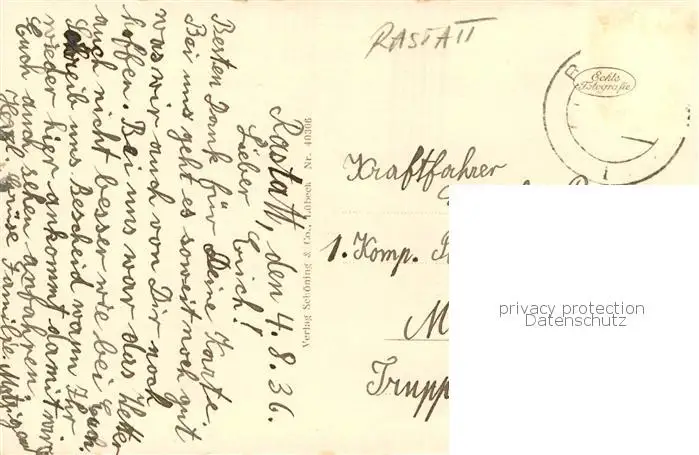 Rastatt, den 4.8.36.
Lieber Erich!
Besten Dank für Deine Karte.
Bei uns geht es soweit noch gut
was wir auch von Dir noch
hoffen. Bei uns war das Wetter
auch nicht besser wie bei Euch.
Schreib uns Bescheid wann Ihr
wieder hier ankommt damit wir
Euch auch sehen anfahren.
Herzl. Grüße Familie
Verlag Schöning & Co., Lübeck Nr. 40306
RASTATT
Echte
Fotografie
Kraftfahrer
1. Komp.
M
Trupp
privacy protection
Datenschutz